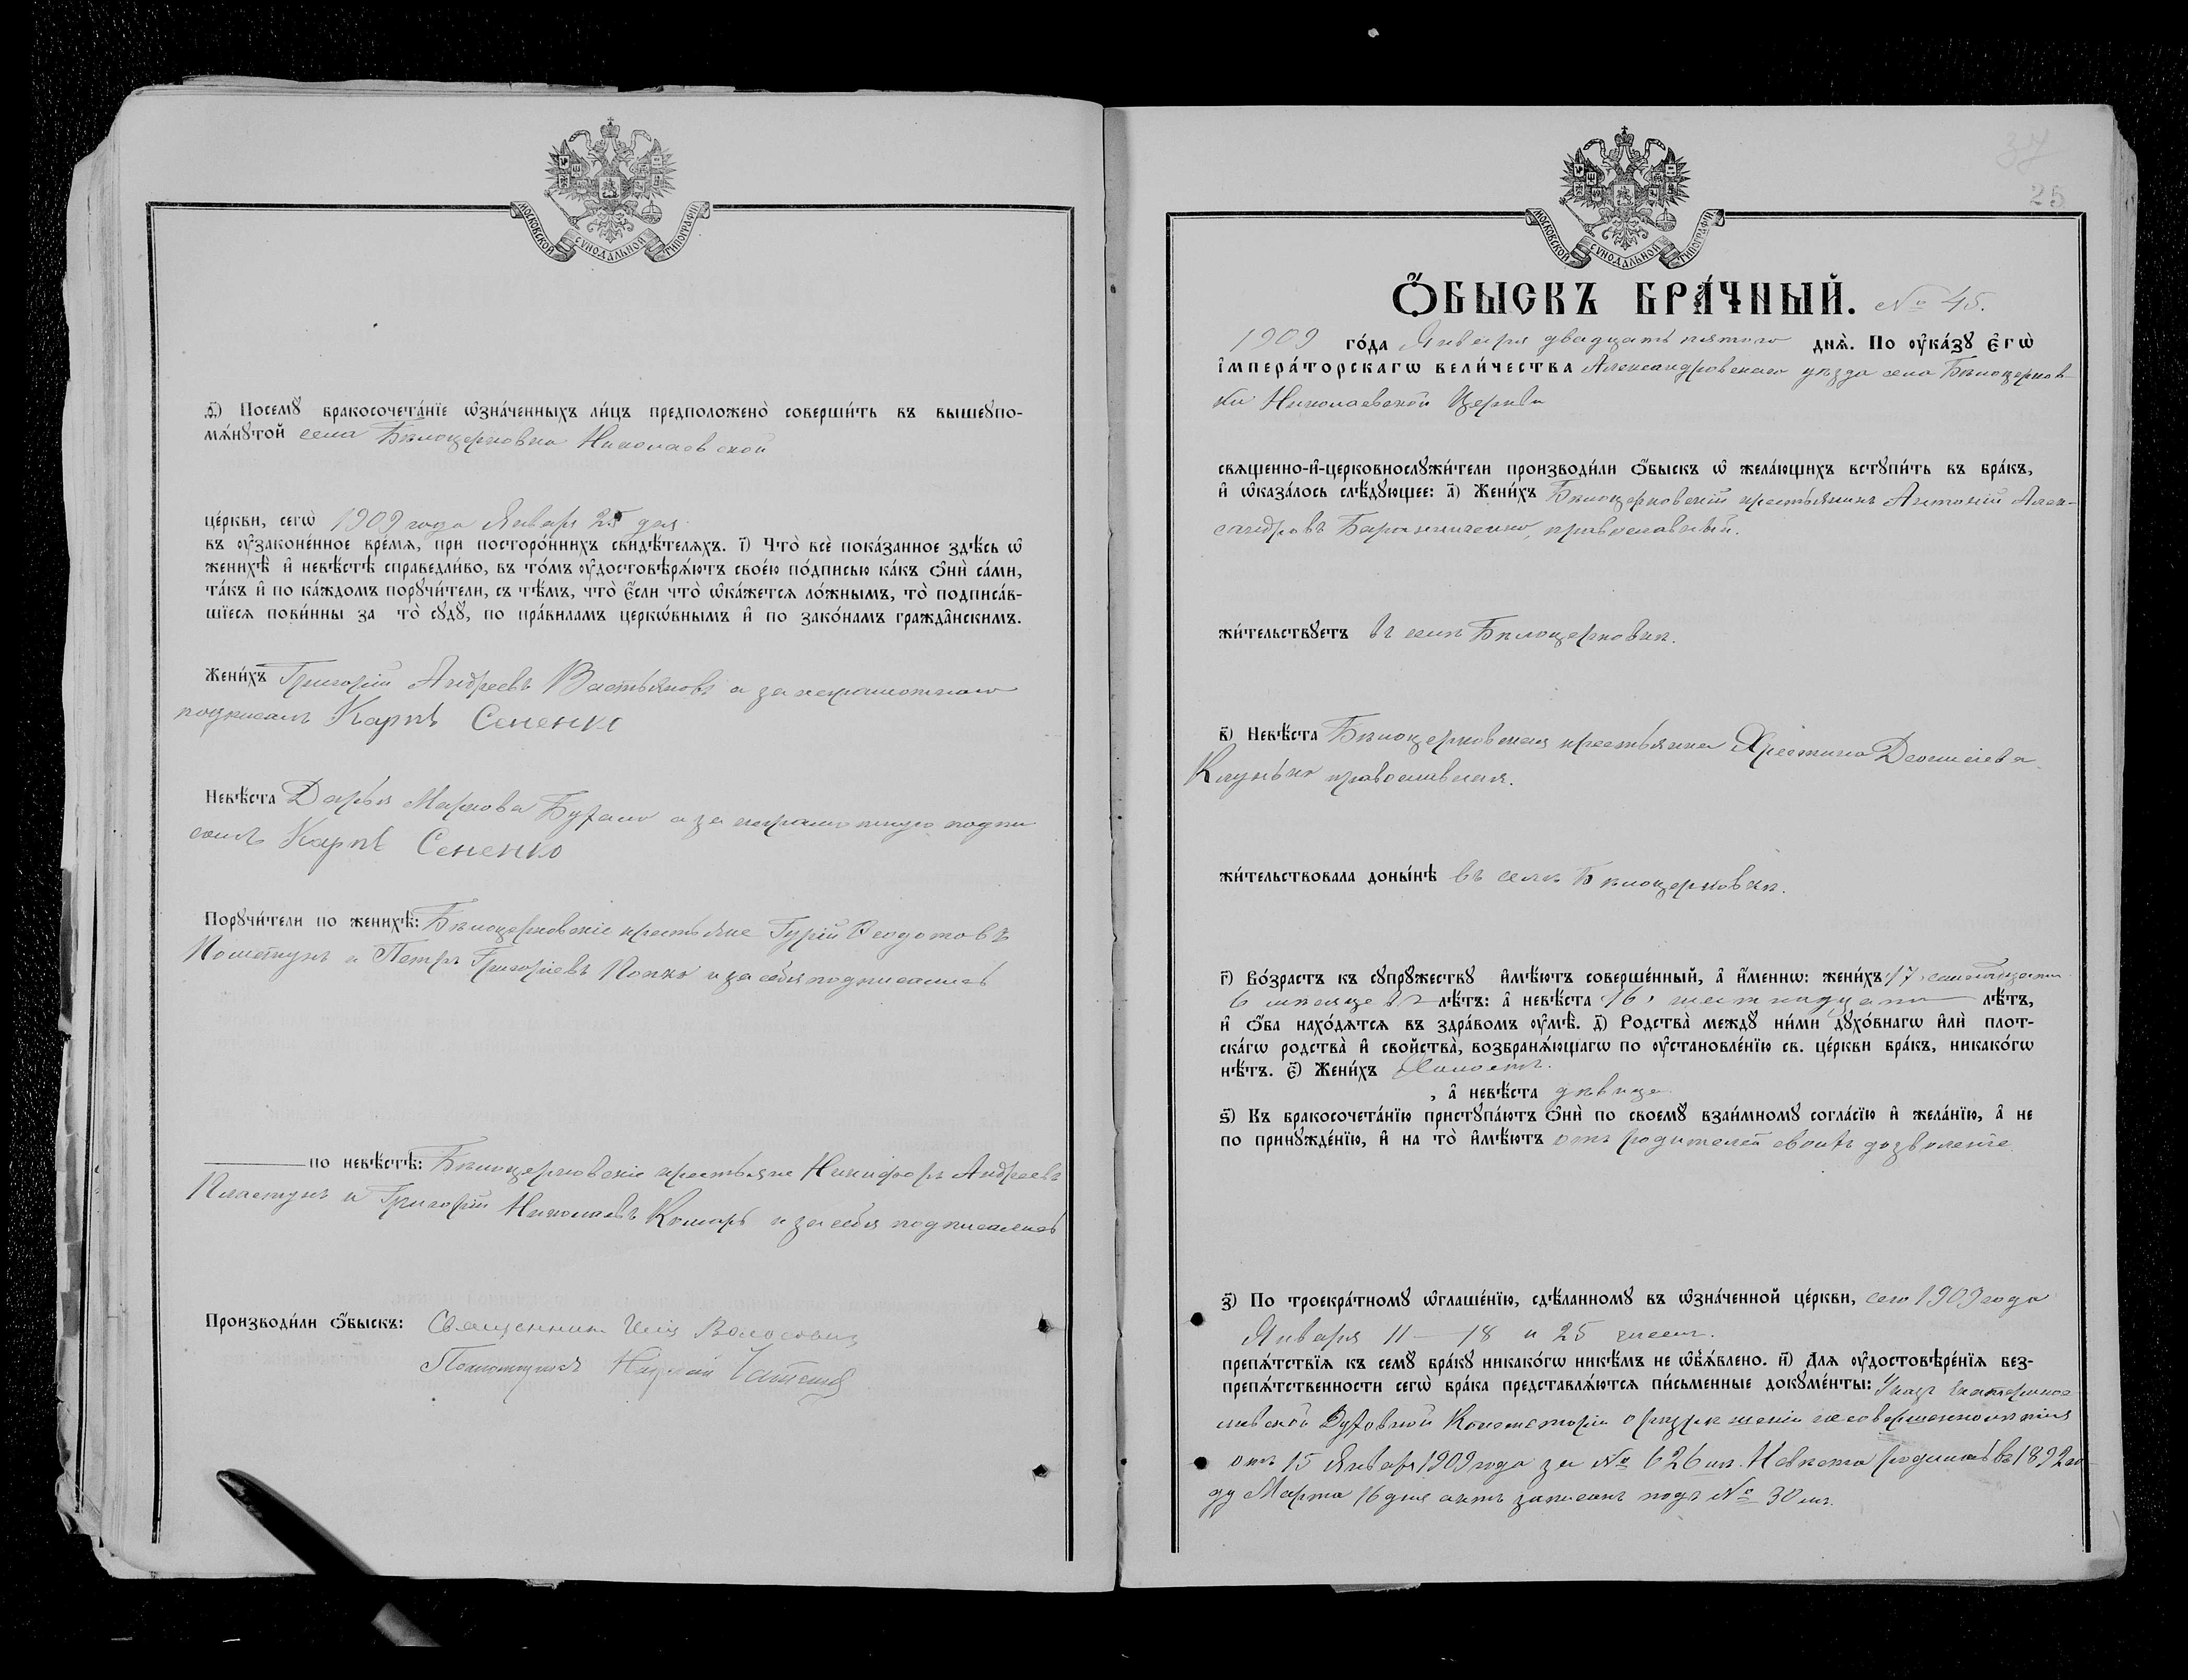 МОСКОВСКОЙ СѴНОДАЛЬНОЙ ТИПОГРАФІИ
ѳ҃) Посемꙋ бракосочета́нїе ѡ҆зна́ченныхъ ли́цъ предположено̀ соверши́ть въ вышеупо-
мѧ́нꙋтой села Бѣлоцерковки Николаевской
це́ркви, сегѡ̀ 1909 года Января 25 дня
въ ᲂу҆законе́нное вре́мѧ, при посторо́ннихъ свидѣ́телѧхъ. і҃) Что̀ всѐ пока́занное здѣ́сь ѡ҆
женихѣ̀ и҆ невѣ́стѣ справедли́во, въ то́мъ ᲂу҆достовѣрѧ́ютъ свое́ю по́дписью ка́къ ѻ҆нѝ са́ми,
та́къ и҆ по ка́ждомъ порꙋчи́тели, съ тѣ́мъ, что̀ є҆́сли что̀ ѡ҆ка́жется ло́жнымъ, то̀ подписа́в-
шїеся пови́нны за то̀ сꙋдꙋ̀, по пра́виламъ церкѡ́внымъ и҆ по зако́намъ гражда̂нскимъ.
Жени́хъ Григорій Андреевъ Вастьяновъ а за неграмотнаго
подписалъ Карпъ Сененко
Невѣ́ста Дарья Маркова Бугало а за неграмотную подпи
салъ Карпъ Сененко
Порꙋчи́тели по женихѣ̀: Бѣлоцерковскіе крестьяне Гурій Ѳеодотовъ
и Петръ Григоріевъ Попко и за себя подписались
по невѣ́стѣ: Бѣлоцерковскіе крестьяне Никифоръ Андреевъ
Пластунъ и Григорій Николаевъ Комаръ и за себя подписались
Производи́ли ѻ҆́быскъ: Священникъ Илія
Псаломщикъ
37
25
МОСКОВСКОЙ СѴНОДАЛЬНОЙ ТИПОГРАФІИ
Ѻ҆́БЫСКЪ БРА́ЧНЫЙ. № 45.
1909 го́да Января двадцать пятаго днѧ̀. По ᲂу҆ка́зꙋ є҆гѡ̀
і҆мпера́торскагѡ вели́чества Александровскаго уѣзда села Бѣлоцерков-
ки Николаевской Церкви
свѧщенно-и҆-церковнослꙋжи́тели производи́ли ѻ҆́быскъ ѡ҆ жела́ющихъ встꙋпи́ть въ бра́къ,
и҆ ѡ҆каза́лось слѣ́дꙋющее: а҃) Жени́хъ Бѣлоцерковскій крестьянинъ Антоній Алек-
сандровъ Баранниченко, православный.
жи́тельствꙋетъ въ селѣ Бѣлоцерковкѣ.
в҃) Невѣ́ста Бѣлоцерковская крестьянка Христина Деонисіева
православная.
жи́тельствовала доны́нѣ въ селѣ Бѣлоцерковкѣ.
г҃) Во́зрастъ къ сꙋпрꙋ́жествꙋ и҆мѣ́ютъ соверше́нный, а҆ и҆́менно: жени́хъ 17, семнадцати
6 мѣсяцевъ лѣ́тъ: а҆ невѣ́ста 16, шестнадцати лѣ́тъ,
и҆ ѻ҆́ба нахо́дѧтсѧ въ здра́вомъ ᲂу҆мѣ̀. д҃) Родства̀ междꙋ̀ ни́ми дꙋхо́внагѡ и҆лѝ плот-
ска́гѡ родства̀ и҆ свойства̀, возбранѧ́ющагѡ по ᲂу҆становле́нїю св. це́ркви бра́къ, никако́гѡ
нѣ́тъ. є҃) Жени́хъ Холостъ.
, а҆ невѣ́ста дѣвица
ѕ҃) Къ бракосочета́нїю пристꙋпа́ютъ ѻ҆нѝ по своемꙋ̀ взаи́мномꙋ согла́сїю и҆ жела́нїю, а҆ не
по принꙋжде́нїю, и҆ на то̀ и҆мѣ́ютъ отъ родителей своихъ дозволеніе.
з҃) По троекра́тномꙋ ѡ҆глаше́нїю, сдѣ́ланномꙋ въ ѡ҆зна́ченной це́ркви, сего 1909 года
Января 11 — 18 и 25 числа.
препѧ́тствїѧ къ семꙋ̀ бра́кꙋ никако́гѡ никѣ́мъ не ѡ҆б̾ѧ́влено. и҃) Для ᲂу҆достовѣре́нїѧ без-
препѧ́тственности сегѡ̀ бра́ка представлѧ́ютсѧ пи́сьменные докꙋме́нты: Указъ Екатеринос
лавской Духовной Консисторіи о разрѣшеніи несовершеннолѣтія
отъ 15 Января 1909 года за № 626 мъ. Невѣста родилась въ 1892 го
ду Марта 16 дня актъ записанъ подъ № 30 мъ.